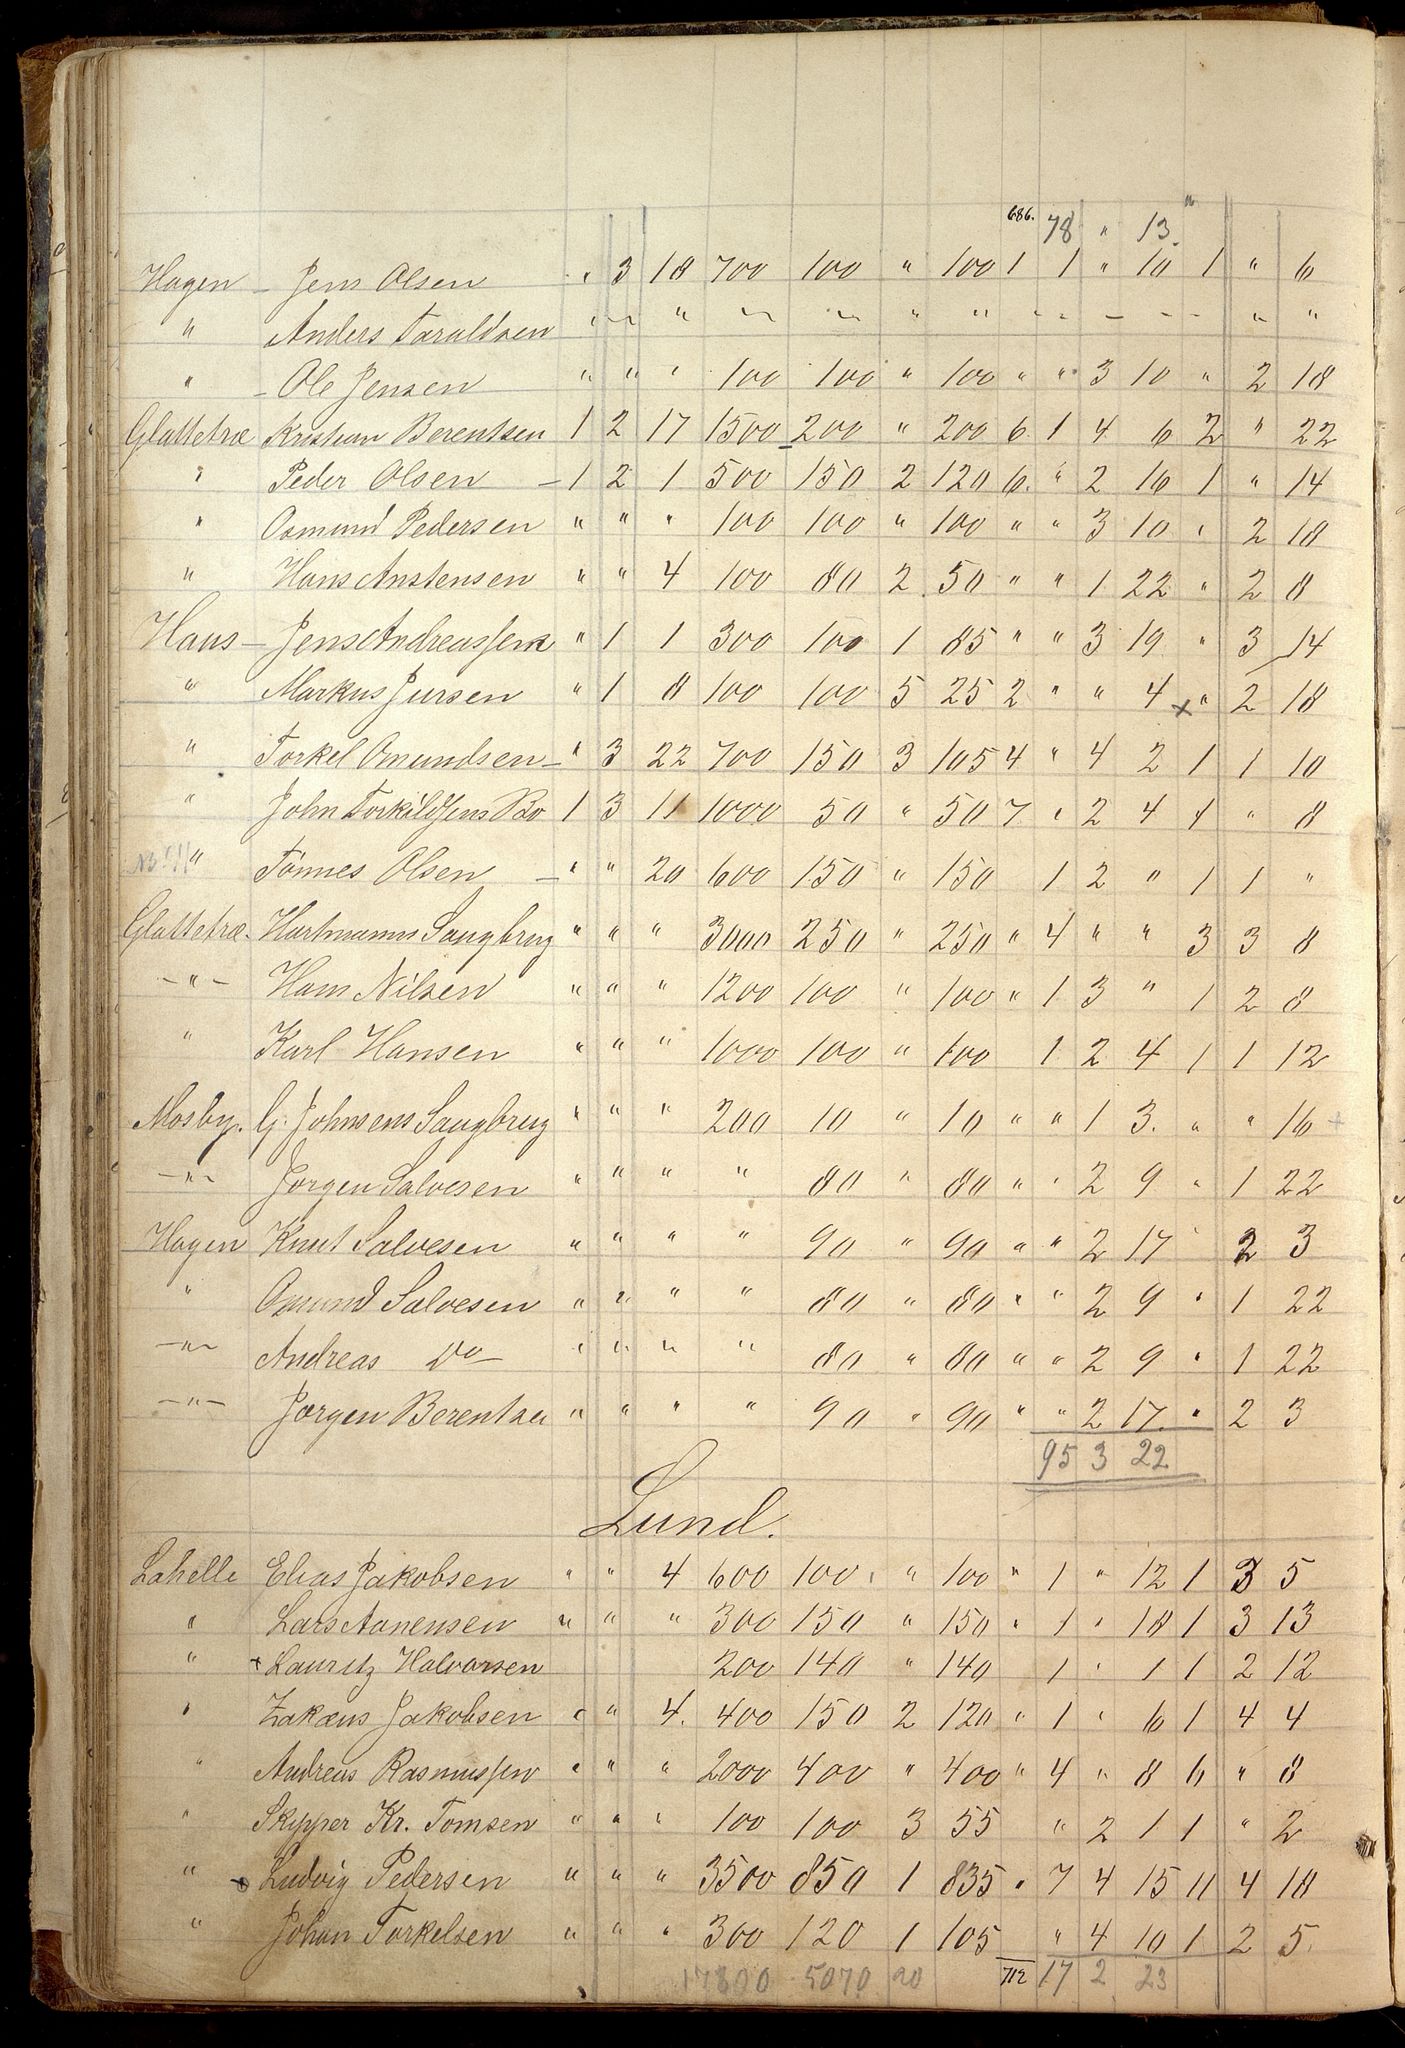 686. 78 " 13. "
Hagen – Jens Olsen " 3 18 700 100 " 100 1 1 " 10 1 " 6
" Anders Taraldsen " " " " " " " " " " " " " "
" – Ole Jensen " " " 100 100 " 100 " " 3 10 " 2 18
Glattetræ Kristian Berentsen 1 2 17 1500 200 " 200 6 1 4 6 2 " 22
" Peder Olsen – 1 2 1 500 150 2 120 6. " 2 16 1 " 14
" Osmund Pedersen " " " 100 100 " 100 " " 3 10 " 2 18
" Hans Anstensen " " 4 100 80 2 50 " " 1 22 " 2 8
Haus – Jens Andreas Jens " 1 1 300 100 1 85 " " 3 19 " 3 14
" Markus Jursen " 1 8 100 100 5 25 2 " " 4 x " 2 18
" Torkel Omundsen – " 3 22 700 150 3 105 4 " 4 2 1 1 10
" John Torkildsens Bo 1 3 11 1000 50 " 50 7 " 2 4 1 " 8
" Tönnes Olsen – " " 20 600 150 " 150 1 2 " 1 1 "
Glattetræ. Hartmanns Saugbrug " " " 3000 250 " 250 " 4 " " 3 3 8
–"– Hans Nilsen " " " 1200 100 " 100 " 1 3 " 1 2 8
" Karl Hansen " " " 1000 100 " 100 1 2 4 1 1 12
Mosby. G. Johnsens Saugbrug " " " 200 10 " 10 " " 1 3. " " 16 +
–"– Jorgen Salvesen " " " " 80 " 80 " " 2 9 " 1 22
Hagen Knut Salvesen " " " " 90 " 90 " " 2 17 " 2 3
" Omund Salvesen " " " " 80 " 80 " " 2 9 " 1 22
–"– Andreas Do– " " " " 80 " 80 " " 2 9 " 1 22
–"– Jørgen Berentsen " " " " 90 " 90 " " 2 17. " 2 3
95 3 22
Lund.
Lahelle Elias Jakobsen " " 4 600 100 " 100 " 1 " 12 1 3 5
" Lars Aanensen " " " 300 150 " 150 " 1 " 18 1 3 13
" + Lauritz Halvorsen 200 140 " 140 1 " 1 1 2 12
" Zakæus Jakobsen " " 4. 400 150 2 120 " 1 " 6 1 4 4
" Andreas Rasmussen " " " 2000 400 " 400 " 4 " 8 6 " 8
" Skipper Kr. Tomsen " " " 100 100 3 55 " 2 1 1 " 2
" Ludvig Pedersen " " " 3500 850 1 835 " 7 4 15 11 4 18
" Johan Torkelsen " " " 300 120 1 105 " 4 10 1 2 5.
17800 5070 20 712 17 2 23